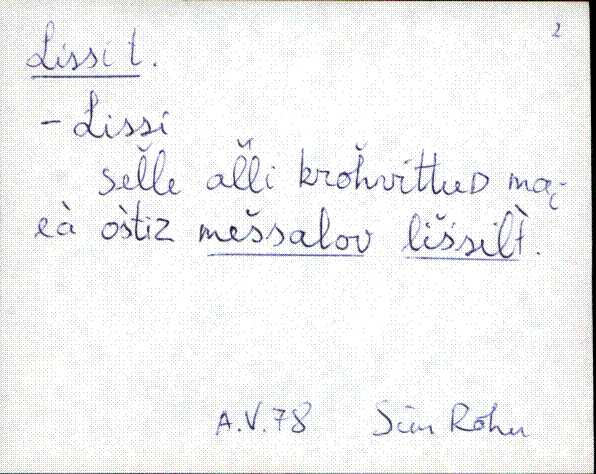 2
Lissi t.
- Lissi
selle al̆l̆i krohvittuD ma̭-
eà òstiz mes̆salov lis̆silt̀.
A.V.78 Siim Rohu